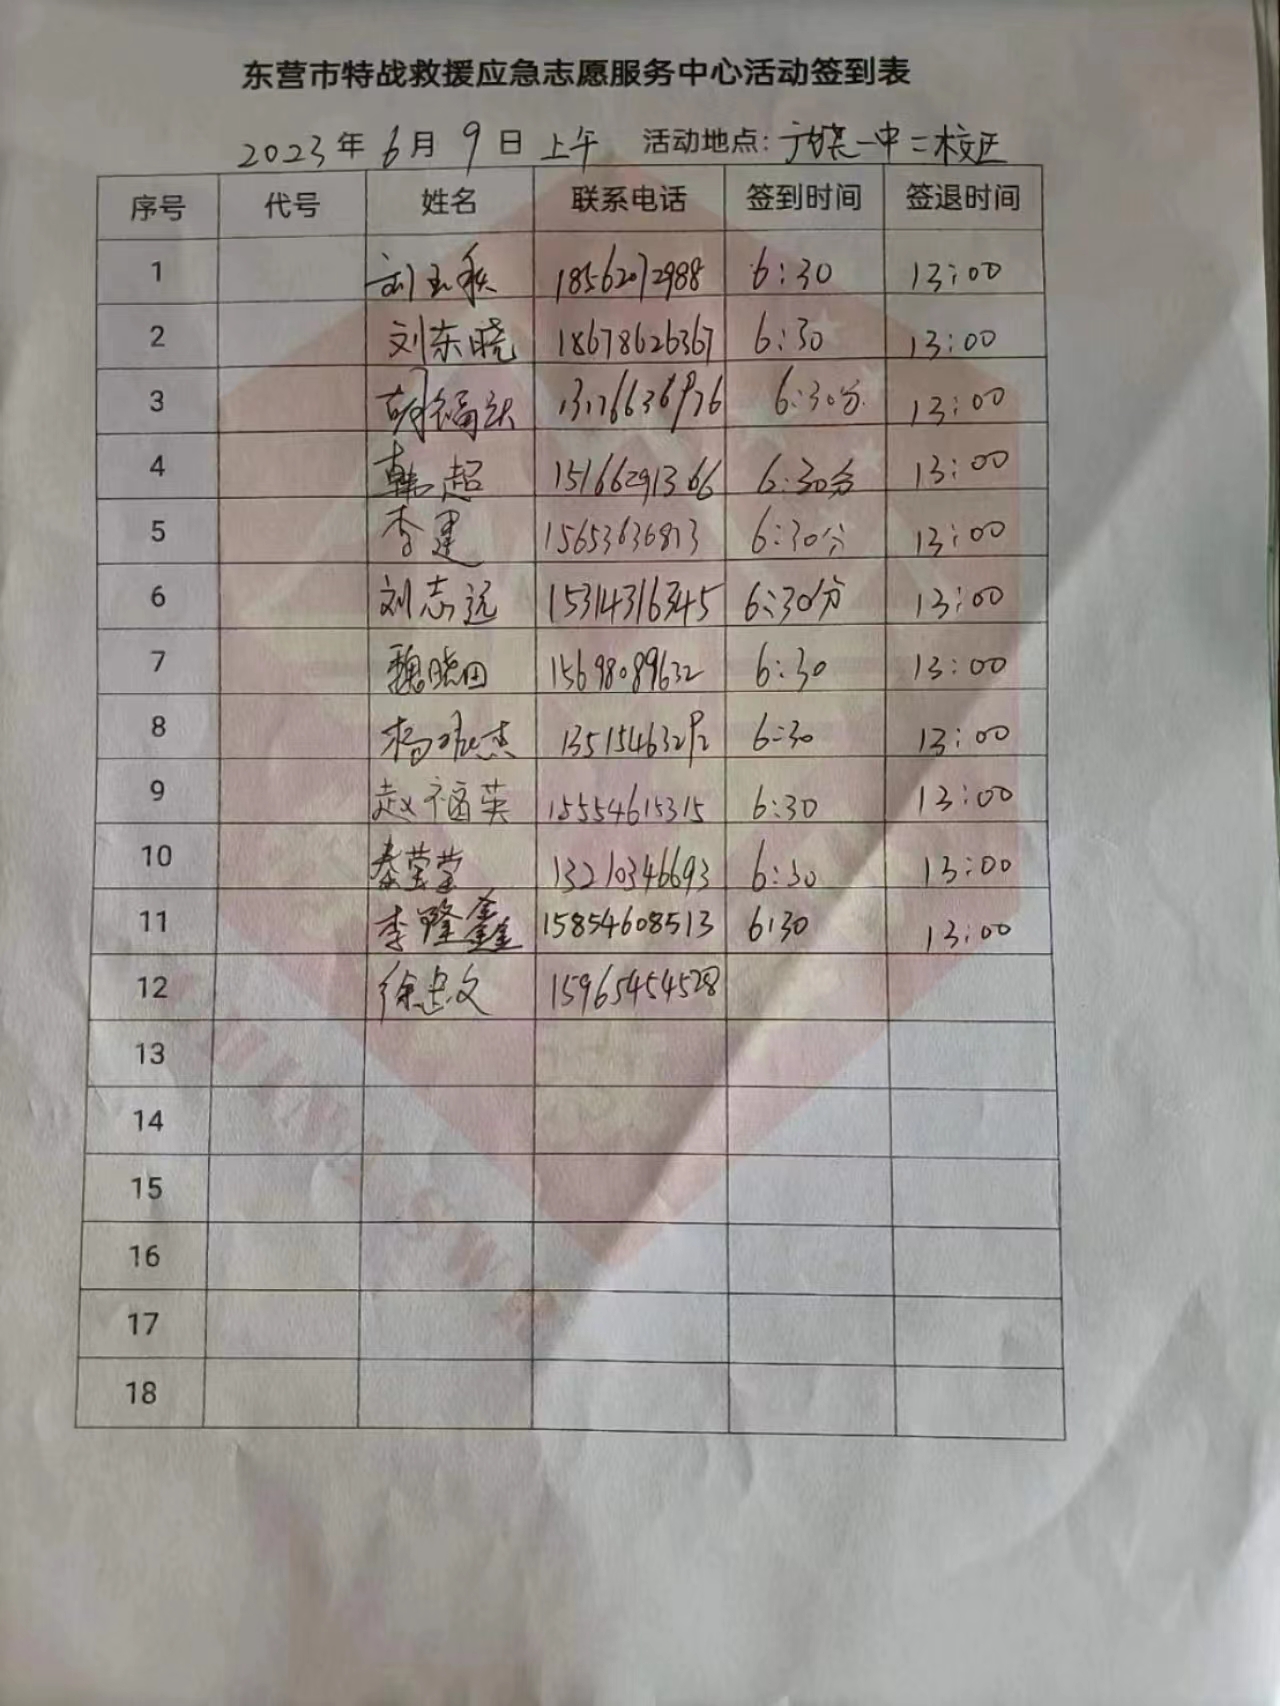 东营市特战救援应急志愿服务中心活动签到表
2023年6月9日上午 活动地点:一中二校区
序号 代号 姓名 联系电话 签到时间 签退时间
1 刘玉秋 18562072988 6:30 13:00
2 刘东晓 18678626367 6:30 13:00
3 胡福 13176636976 6:30分 13:00
4 韩超 15166291366 6:30分 13:00
5 李建 15653636813 6:30分 13:00
6 刘志远 15314316345 6:30分 13:00
7 魏晓田 15698089632 6:30 13:00
8 杨杰 13515463292 6:30 13:00
9 赵福英 15554615315 6:30 13:00
10 秦莹莹 13210346693 6:30 13:00
11 李隆鑫 15854608513 6:30 13:00
12 徐忠文 15965454528
13
14
15
16
17
18